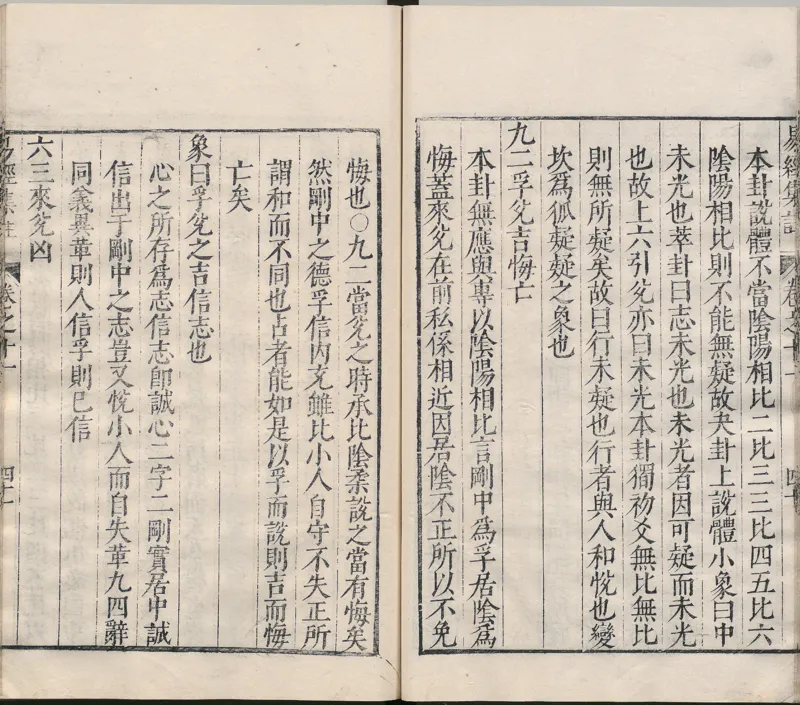 本卦說體不當陰陽相比二比三三比四五比六
陰陽相比則不能無疑故夬卦上說體小象曰中
未光也萃卦曰志未光也未光者因可疑而未光
也故上六引兌亦曰未光本卦獨初爻無比無比
則無所疑矣故曰行未疑也行者與人和恱也變
坎爲狐疑疑之象也
九二孚兌吉悔亡
本卦無應與專以陰陽相比言剛中爲孚居陰爲
悔蓋來兌在前私係相近因居陰不正所以不免
悔也○九二當兌之時承比陰柔說之當有悔矣
然剛中之德孚信內充雖比小人自守不失正所
謂和而不同也占者能如是以孚而說則吉而悔
亡矣
象曰孚兌之吉信志也
心之所存爲志信志卽誠心二字二剛實居中誠
信出于剛中之志豈又恱小人而自失革九四辭
同義異革則人信孚則已信
六三來兌凶
易經集註
卷之十一
四十一